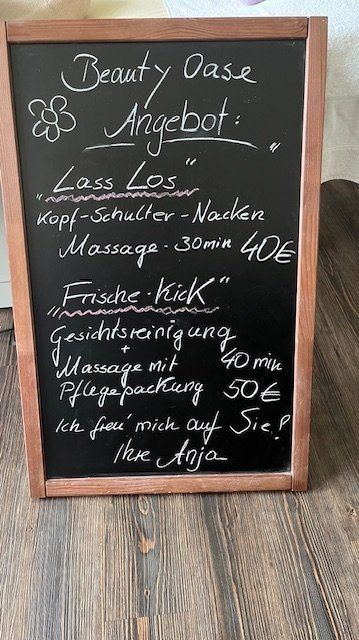 Beauty Oase
Angebot:
"Lass Los"
Kopf-Schulter-Nacken
Massage - 30min 40€
"Frische-Kick"
Gesichtsreinigung
+
Massage mit 40 min
Pflegepackung 50€
Ich freu' mich auf Sie!
Ihre Anja